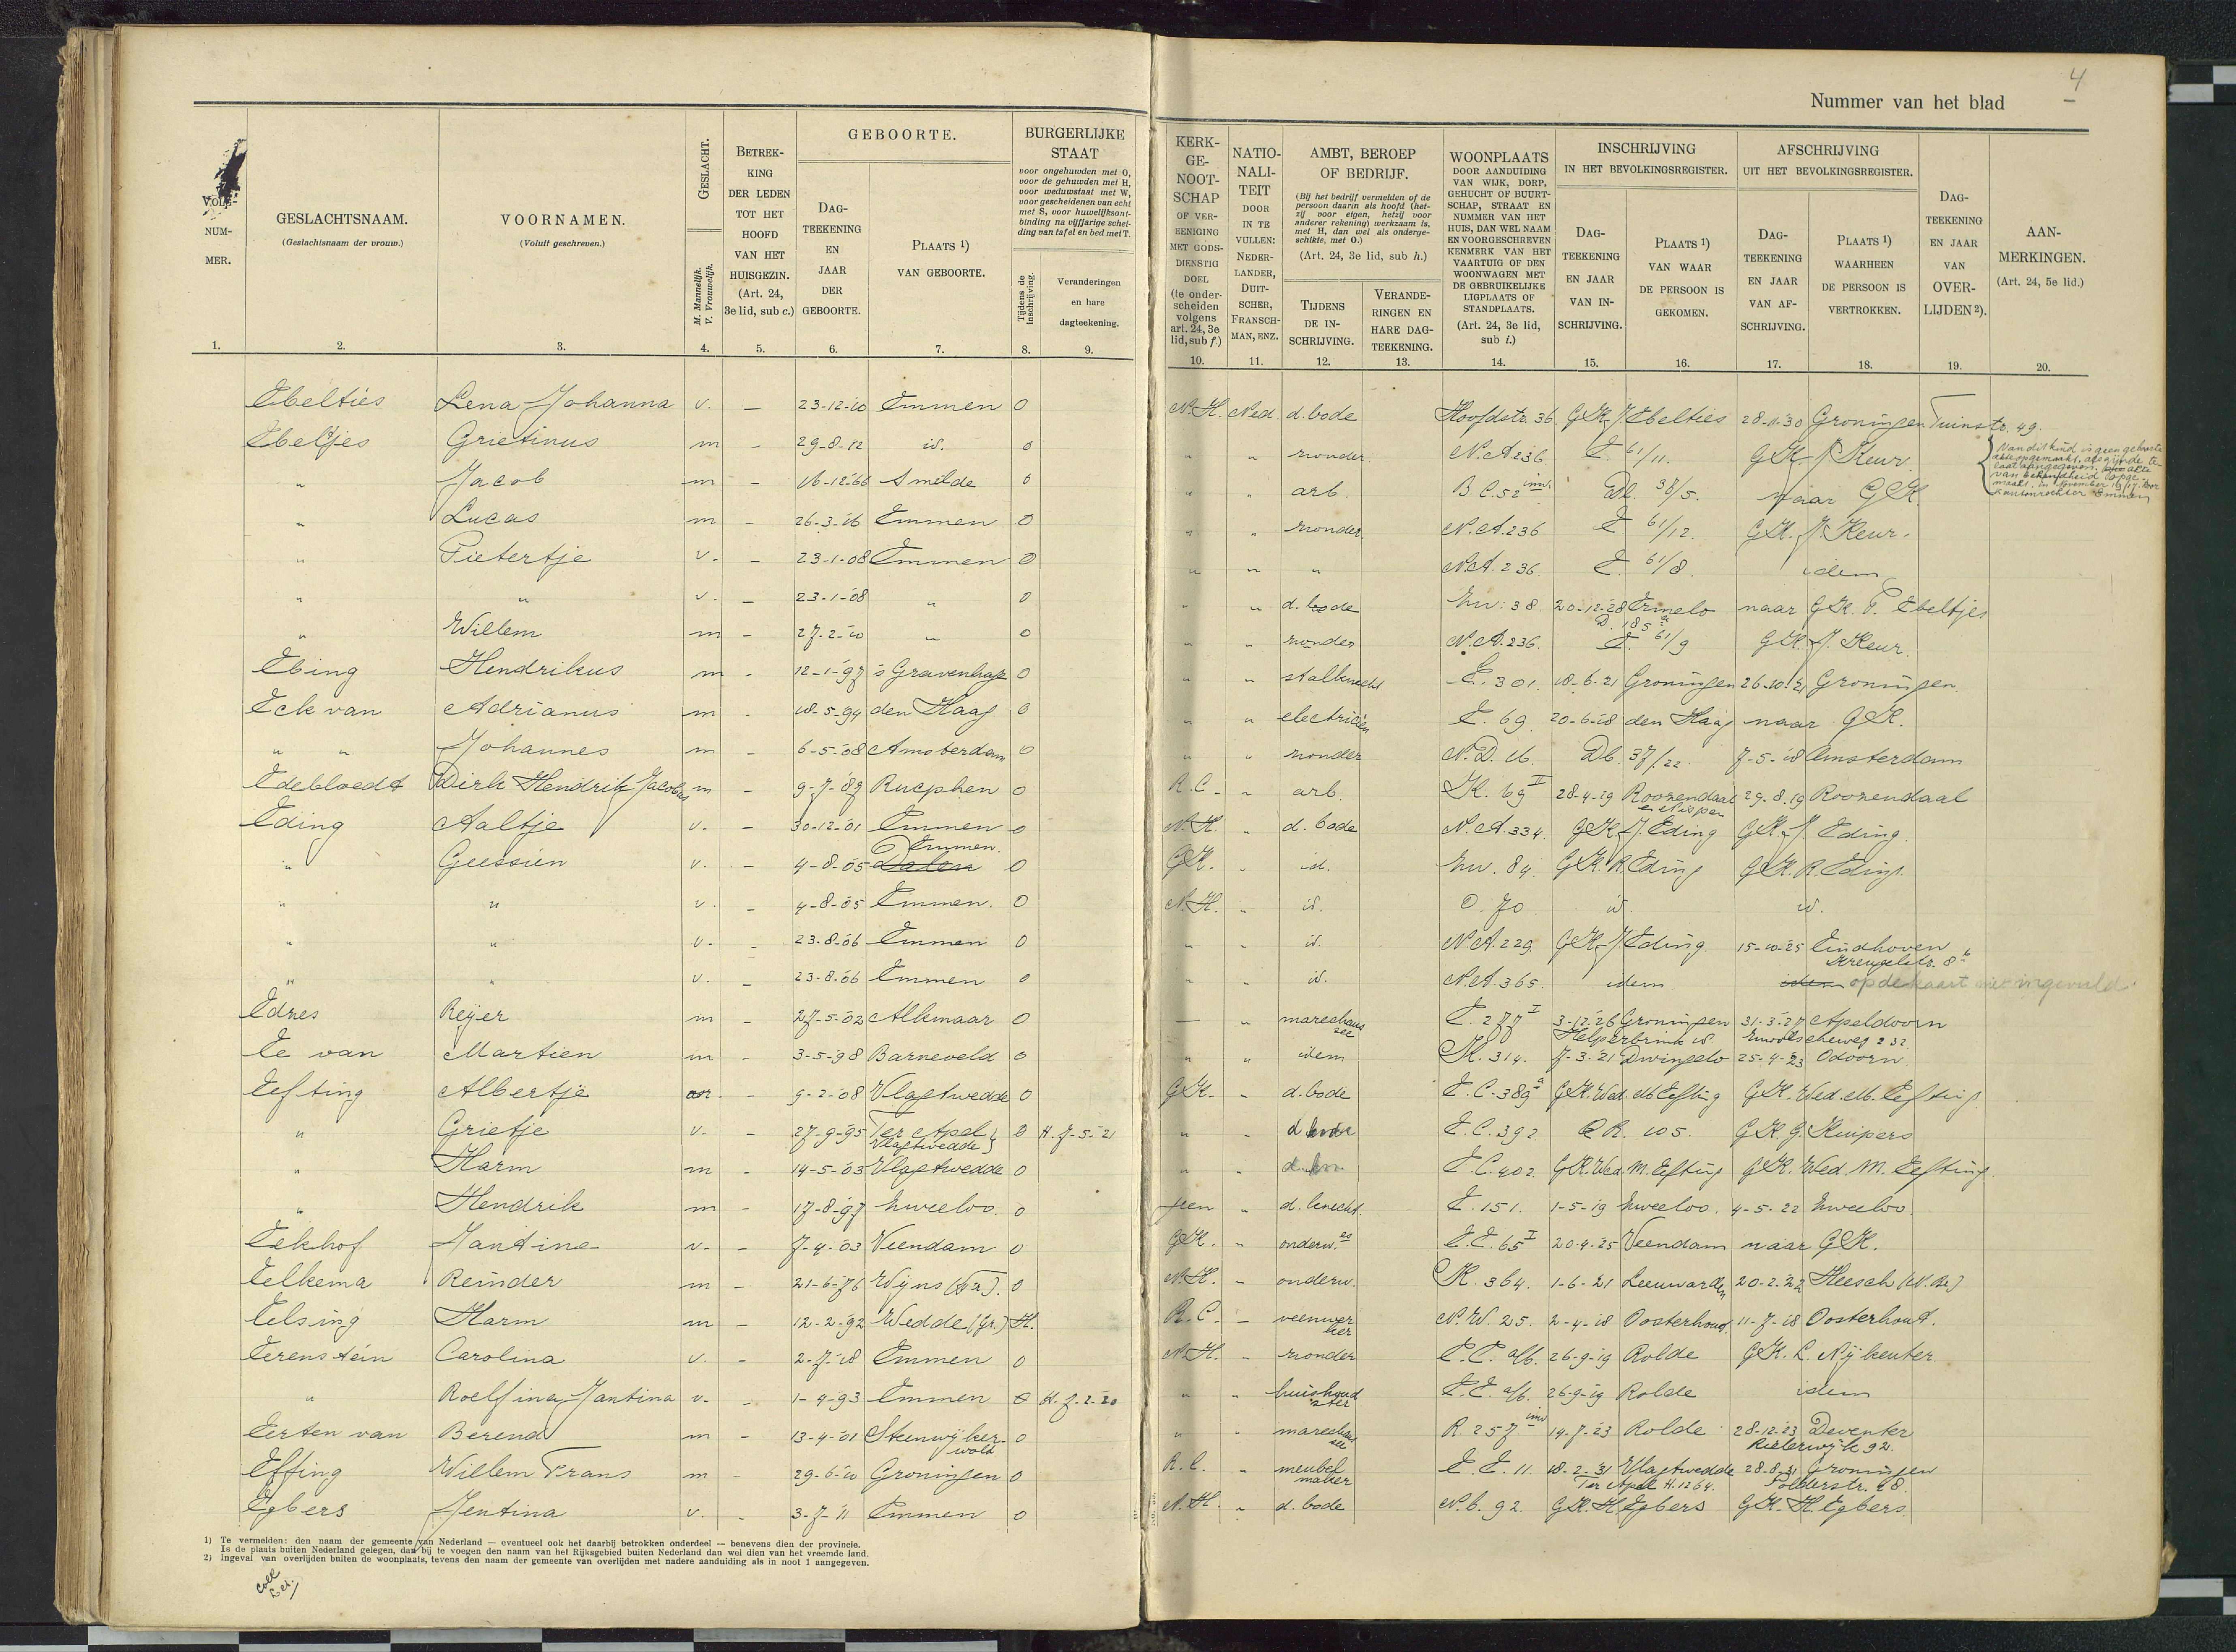 4
Nummer van het blad
VOLG-NUM-MER.
GESLACHTSNAAM. (Geslachtsnaam der vrouw.)
VOORNAMEN. (Voluit geschreven.)
GESLACHT. M. Mannelijk. V. Vrouwelijk.
BETREKKING DER LEDEN TOT HET HOOFD VAN HET HUISGEZIN. (Art. 24, 3e lid, sub c.)
GEBOORTE.
DAG-TEEKENING EN JAAR DER GEBOORTE.
PLAATS 1) VAN GEBOORTE.
BURGERLIJKE STAAT
voor ongehuwden met O, voor de gehuwden met H, voor weduwstaat met W, voor gescheidenen van echt met S, voor huwelijksontbinding na vijfjarige scheiding van tafel en bed met T.
Tijdens de Inschrijving.
Veranderingen en hare dagteekening.
KERK-GE-NOOT-SCHAP OF VER-EENIGING MET GODS-DIENSTIG DOEL (te onderscheiden volgens art. 24, 3e lid, sub f.)
NATIO-NALI-TEIT DOOR IN TE VULLEN: NEDER-LANDER, DUIT-SCHER, FRANSCH-MAN, ENZ.
AMBT, BEROEP OF BEDRIJF.
(Bij het bedrijf vermelden of de persoon daarin als hoofd (hetzij voor eigen, hetzij voor anderer rekening) werkzaam is, met H, dan wel als ondergeschikte, met O.)
(Art. 24, 3e lid, sub h.)
TIJDENS DE IN-SCHRIJVING.
VERANDE-RINGEN EN HARE DAG-TEEKENING.
WOONPLAATS DOOR AANDUIDING VAN WIJK, DORP, GEHUCHT OF BUURT-SCHAP, STRAAT EN NUMMER VAN HET HUIS, DAN WEL NAAM EN VOORGESCHREVEN KENMERK VAN HET VAARTUIG OF DEN WOONWAGEN MET DE GEBRUIKELIJKE LIGPLAATS OF STANDPLAATS. (Art. 24, 3e lid, sub i.)
INSCHRIJVING IN HET BEVOLKINGSREGISTER.
DAG-TEEKENING EN JAAR VAN IN-SCHRIJVING.
PLAATS 1) VAN WAAR DE PERSOON IS GEKOMEN.
AFSCHRIJVING UIT HET BEVOLKINGSREGISTER.
DAG-TEEKENING EN JAAR VAN AF-SCHRIJVING.
PLAATS 1) WAARHEEN DE PERSOON IS VERTROKKEN.
DAG-TEEKENING EN JAAR VAN OVER-LIJDEN 2).
AAN-MERKINGEN. (Art. 24, 5e lid.)
1. 2. 3. 4. 5. 6. 7. 8. 9. 10. 11. 12. 13. 14. 15. 16. 17. 18. 19. 20.
Ebelties Lena Johanna v. - 23-12-'10 Emmen O N.H. Ned. d. bode Hoofdstr. 36 G.K. J. Ebelties 28-1-'30 Groningen Tuinstr. 49.
Ebeltjes Grietinus m - 29-8-12 id. O " " zonder N.A 236 E 61/11. G.K. J. Keur.
" Jacob m - 16-12-66 Smilde O " " arb. B.C. 52 inw. Db. 38/5. naar G.K.
" Lucas m - 26-3-'16 Emmen O " " zonder N.A. 236 E 61/12. G.K. J. Keur.
" Pietertje v. - 23-1-08 Emmen O " " " N.A. 236. E. 61/8. idem
" " v. - 23-1-'08 " O " " d. bode Zw: 38 20-12-'28 Ermelo D. 185 naar G.K. P. Ebeltjes
" Willem m - 27-2-'10 " O " " zonder N.A. 236. E. 61/9 G.K. J. Keur.
Ebing Hendrikus m - 12-1-'97 's Gravenhage O " " stalknecht E. 301. 18-6-21 Groningen 26-10-'21 Groningen.
Eck van Adrianus m - 18-5-'94 den Haag O " " electriciën E. 69. 20-6-'18 den Haag naar G.K.
" " Johannes m - 6-5-'08 Amsterdam O " " zonder N.D. 16. Db. 37/22 7-5-'18 Amsterdam
Edebloedt Dirk Hendrik Jacobus m - 9-7-'87 Rucphen O R.C. " arb. K. 69 I 28-4-19 Roozendaal en Nispen 29-8-19 Roozendaal
Eding Aaltje v. - 30-12-'01 Emmen O N.H. " d. bode N.A. 334. G.K. J. Eding G.K. J. Eding.
" Geessien v. - 4-8-'05 Dalen Emmen. O G.K. " id. Zw. 84. G.K. R. Eding G.K. R. Eding.
" " v. - 4-8-'05 Emmen. O N.H. " id. O. 70 id. id.
" " v. - 23-8-'06 Emmen O " " id. N.A. 229. G.K. J Eding. 15-10-'25 Eindhoven
" " v. - 23-8-'06 Emmen O " " id. N.A. 365. idem idem op de kaart niet ingevuld.
Edzes Reijer m - 27-5-'02 Alkmaar O — " marechaussee E. 277 I 3-12-'26 Groningen Helperbrink 18. 31-3-'27 Apeldoorn Zwolscheweg 232
Ee van Martien m - 3-5-'98 Barneveld O " " idem K. 314. 7-3-'21 Dwingelo 25-4-'23 Odoorn.
Eefting Albertje - 9-2-'08 Vlagtwedde O G.K. " d. bode E.C. 389 a G.K. Wed. M Eefting G.K. Wed. M. Eefting.
" Grietje v. - 27-9-'95 Ter Apel Vlagtwedde O H. 7-5-'21 " " d bode E.C. 392. R. 105. G.K. G. Kuipers
" Harm m - 14-5-'03 Vlagtwedde O " " E.C. 402. G.K. Wed. M. Eefting G.K. Wed. M. Eefting.
" Hendrik m - 17-8-'97 Zweeloo. O geen " d. knecht. E. 151. 1-5-19 Zweeloo. 4-5-22 Zweeloo.
Eekhof Jantina v. - 7-4-'03 Veendam O G.K. " onderw. es E.E. 65 I 20-4-'25 Veendam naar G.K.
Eelkema Reinder m - 21-6-'76 Wijns (Fr.). O N.H. " onderw. K. 364. 1-6-'21 Leeuwarden 20-2-'22 Heesch (N. Br.)
Eelsing Harm m - 12-2-'92 Wedde (Gr.) H. R.C. " veenwerker N.W. 25. 2-4-'18 Oosterhout. 11-7-'18 Oosterhout.
Eerenstein Carolina v. - 2-7-'18 Emmen O N.H. " zonder E.E. a/b. 26-9-'19 Rolde G.K. L. Nijkeuter.
" Roelfina Jantina v. - 1-4-93 Emmen O H. 7-2-'20 " " huishoudster E.E. a/b. 26-9-'19 Rolde idem
Eerten van Berend m - 13-4-'01 Steenwijkerwold O " " marechaussee R. 257 inw 14-7-'23 Rolde 28-12-'23 Deventer Rielerwijk 92.
Effing Willem Frans m - 29-6-'10 Groningen O R.C. " meubelmaker E.E. 11. 18-2-'31 Vlagtwedde Ter Apel H. 1264. 28-8-'31 Groningen Polderstr. 68.
Egbers Jentina v. - 3-7-'11 Emmen O N.H. " d. bode N.b. 92. G.K. H. Egbers G.K. H. Egbers.
Van dit kind is geen geboorteakte opgemaakt, als zijnde te laat aangegeven. akte van bekendheid opgemaakt in November voor Kantonrechter Emmen
1) Te vermelden: den naam der gemeente van Nederland — eventueel ook het daarbij betrokken onderdeel — benevens dien der provincie.
Is de plaats buiten Nederland gelegen, dan bij te voegen den naam van het Rijksgebied buiten Nederland dan wel dien van het vreemde land.
2) Ingeval van overlijden buiten de woonplaats, tevens den naam der gemeente van overlijden met nadere aanduiding als in noot 1 aangegeven.